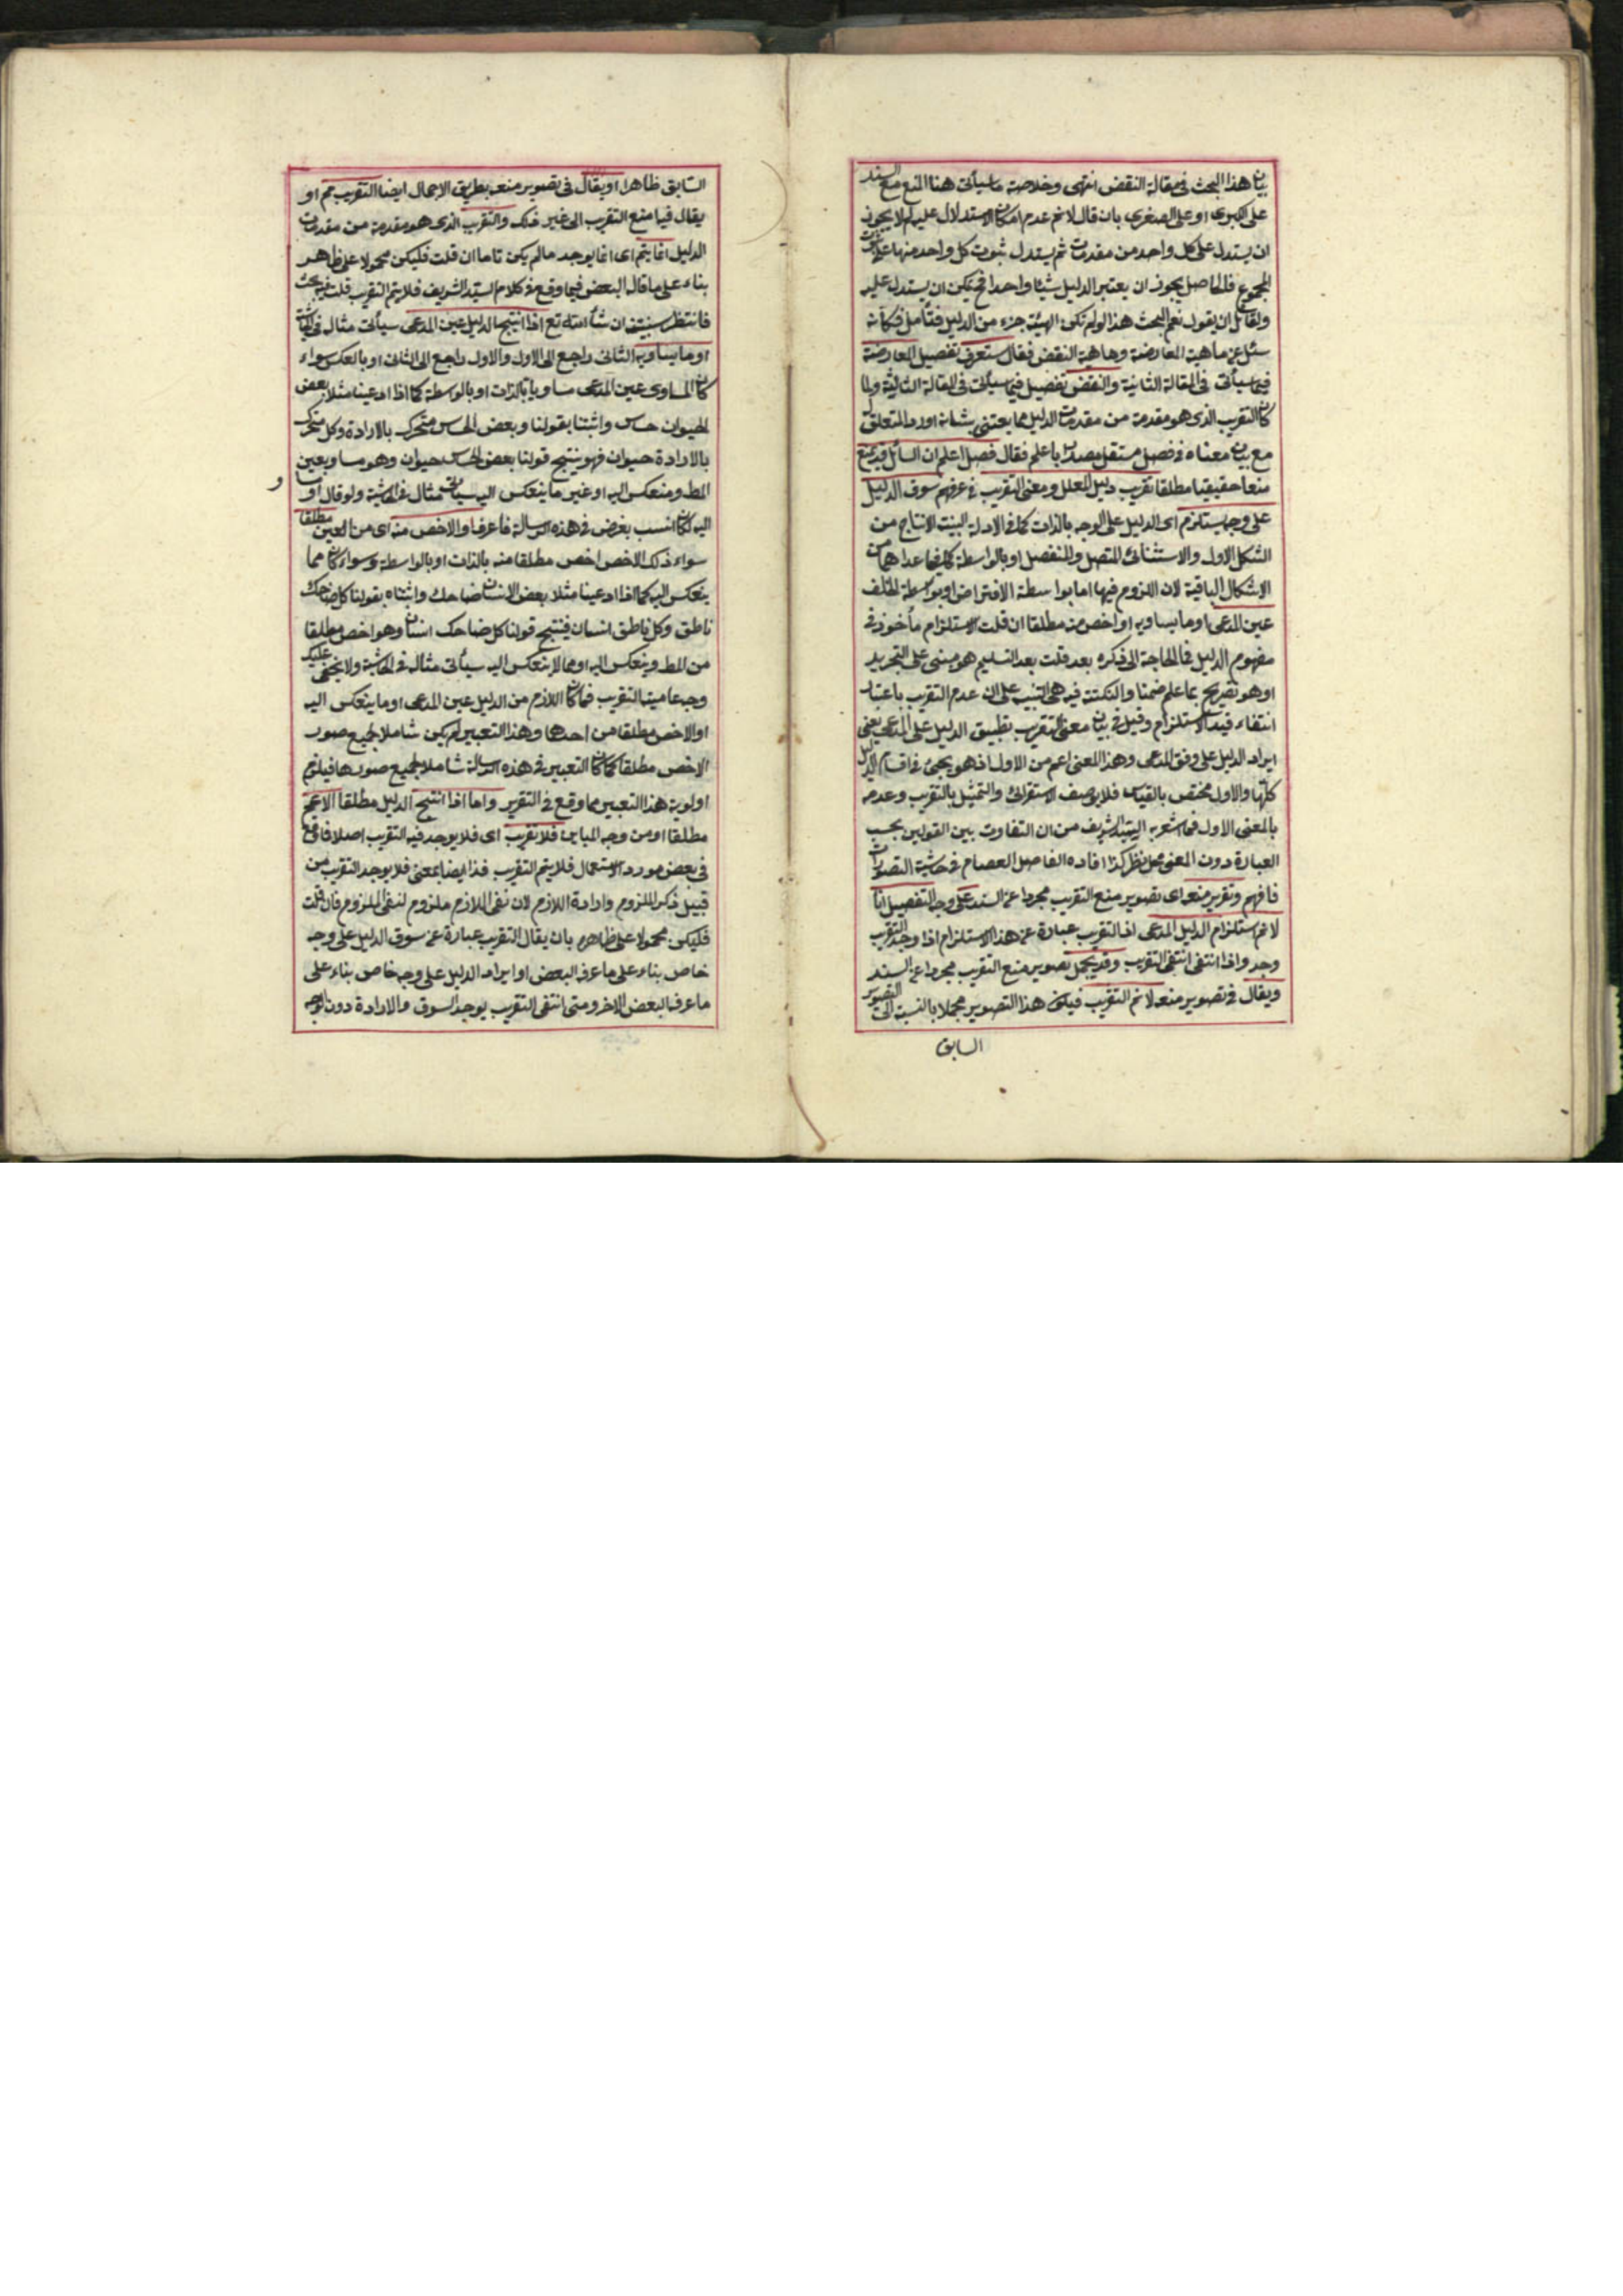 بيان هذا البحث في مقالة النقض انتهى وخلاصة ما سيأتي هنا المنع مع السند
على الكبرى او على الصغرى بان قال لا نم عدم امكان الاستدلال عليه لم لا يجوز
ان يستدل على كل واحد من مقدمات ثم يستدل ثبوت كل واحد منها على ثبوت
المجموع فالحاصل يجوز ان يعتبر الدليل شيئا واحدا فيمكن ان يستدل عليه
ولقائل ان يقول نعم البحث هذا لو لم تكن الهيئة جزء من الدليل فتأمل فكأنه
سئل عن ماهية المعارضة وماهية النقض فقال ستعرف تفصيل المعارضة
فيما سيأتي في المقالة الثانية والنقض تفصيل فيما سيأتي في المقالة الثالثة ولما
كان التقريب الذي هو مقدمة من مقدمات الدليل مما يعتنى بشانه اورد المتعلق به
مع بيان معناه في فصل مستقل مصدرا باعلم فقال فصل اعلم ان السائل قد يمنع
منعا حقيقيا مطلقا تقريب دليل المعلل ومعنى التقريب في عرفهم سوق الدليل
على وجه يستلزم اى الدليل على الوجه بالذات كما في الادلة البينة الانتاج من
الشكل الاول والاستثنائى المتصل والمنفصل او بالواسطة كما فيما عداهما من
الاشكال الباقية لان اللزوم فيها اما بواسطة الافتراض او بواسطة الخلف
عين المدعى او ما يساويه او اخص منه مطلقا ان قلت الاستلزام مأخوذ في
مفهوم الدليل فما الحاجة الى ذكره بعد قلت بعد التسليم هو مبنى على التجريد
او هو تصريح بما علم ضمنا والنكتة فيه هى التنبيه على ان عدم التقريب باعتبار
انتفاء قيد الاستلزام وقيل في بيان معنى التقريب تطبيق الدليل على المدعى يعنى
ايراد الدليل على وفق المدعى وهذا المعنى اعم من الاول اذ هو يجيئ في اقسام الدليل
كلها والاول مختص بالقياس فلا يوصف الاستقرائى والتمثيل بالتقريب وعدمه
بالمعنى الاول فما اشعر به السيد الشريف من ان التفاوت بين القولين بحسب
العبارة دون المعنى محل نظر كذا افاده الفاضل العصام في حاشية التصورات
فافهم وتقرير منعه اى تصوير منع التقريب مجردا عن السند على وجه التفصيل انا
لا نم استلزام الدليل المدعى اذ التقريب عبارة عن هذا الاستلزام اذا وجد التقريب
وجد واذا انتفى انتفى التقريب وقد يجمل تصوير منع التقريب مجردا عن السند
ويقال في تصوير منعه لا نم التقريب فيكون هذا التصوير مجملا بالنسبة الى التصوير
السابق
السابق ظاهرا او يقال في تصوير منعه بطريق الاجمال ايضا التقريب مم او
يقال فيما منع التقريب الى غير ذلك والتقريب الذى هو مقدمة من مقدمات
الدليل انما يتم اى انما يوجد ما لم يكن تاما ان قلت فليكن محمولا على ظاهر
بناء على ما قال البعض فيما وقع في كلام السيد الشريف فلا يتم التقريب قلت فيه بحث
فانتظر سنبينه ان شاء الله تع اذا انتج الدليل عين المدعى سيأتى مثال في الحاشية
او ما يساويه الثانى راجع الى الاول والاول راجع الى الثانى او بالعكس سواء
كان المساوى عين المدعى مساويا بالذات او بالواسطة كما اذا ادعينا مثلا بعض
الحيوان حساس واثبتنا بقولنا وبعض الحساس متحرك بالارادة وكل متحرك
بالارادة حيوان فهو ينتج قولنا بعض الحساس حيوان وهو مساو بعين
المط ومنعكس اليه او غير ما ينعكس اليه سيأتى مثال في الحاشية ولو قال او
اليه لكان انسب بغرض في هذه الرسالة فاعرف او الاخص منه اى من العين مطلقا
سواء ذلك الاخص اخص مطلقا منه بالذات او بالواسطة وسواء كان مما
ينعكس اليه كما اذا ادعينا مثلا بعض الانسان ضاحك واثبتناه بقولنا كل ضاحك
ناطق وكل ناطق انسان فينتج قولنا كل ضاحك انسان وهو اخص مطلقا
من المط وينعكس اليه او مما لا ينعكس اليه سيأتى مثاله في الحاشية ولا يخفى عليك
وجه عامية التقريب فما كان اللازم من الدليل عين المدعى او ما ينعكس اليه
او الاخص مطلقا من احدها وهذا التعبير لم يكن شاملا لجميع صور
الاخص مطلقا كما كان التعبير في هذه الرسالة شاملا لجميع صورها فيلزم
اولوية هذا التعبير مما وقع في التقرير واما اذا انتج الدليل مطلقا الاعم
مطلقا او من وجه المباين فلا تقريب اى فلا يوجد فيه التقريب اصلا فما وقع
في بعض مورد الاستعمال فلا يتم التقريب فذا ايضا بمعنى فلا يوجد التقريب من
قبيل ذكر الملزوم وارادة اللازم لان نفى اللازم ملزوم لنفى الملزوم فان قلت
فليكن محمولا على ظاهره بان يقال التقريب عبارة عن سوق الدليل على وجه
خاص بناء على ما عرفه البعض او ايراد الدليل على وجه خاص بناء على
ما عرفه البعض الاخر ومتى انتفى التقريب يوجد السوق والارادة دون الوجه